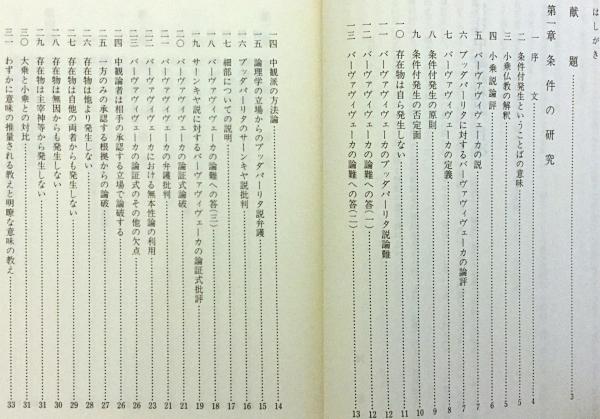 はしがき
献題……3
第一章 条件の研究
一 序文……4
二 条件付発生ということばの意味……5
三 小乗仏教の解釈……5
四 小乗説論評……6
五 バーヴァヴィヴェーカの説……7
六 ブッダパーリタに対するバーヴァヴィヴェーカの論評……7
七 バーヴァヴィヴェーカの定義……8
八 条件付発生の原則……9
九 条件付発生の否定面……10
一〇 存在物は自ら発生しない……11
一一 バーヴァヴィヴェーカのブッダパーリタ説論難……12
一二 バーヴァヴィヴェーカの論難への答(一)……12
一三 バーヴァヴィヴェーカの論難への答(二)……13
一四 中観派の方法論……14
一五 論理学の立場からのブッダパーリタ説弁護……15
一六 ブッダパーリタのサーンキヤ説批判……16
一七 細部についての説明……17
一八 バーヴァヴィヴェーカの論難への答(三)……18
一九 サーンキヤ説に対するバーヴァヴィヴェーカの論証式批評……19
二〇 バーヴァヴィヴェーカの論証式論破……21
二一 バーヴァヴィヴェーカの弁護批判……21
二二 バーヴァヴィヴェーカにおける無本性論の利用……23
二三 バーヴァヴィヴェーカの論証式のその他の欠点……26
二四 中観論者は相手の承認する立場で論破する……26
二五 一方のみの承認する根拠からの論破……27
二六 存在物は他より発生しない……28
二七 存在物は自他の両者からも発生しない……29
二八 存在物は無因からも発生しない……30
二九 存在物は主宰神等から発生しない……31
三〇 大乗と小乗との対比……31
三一 わずかに意味の推量される教えと明瞭な意味の教え……33